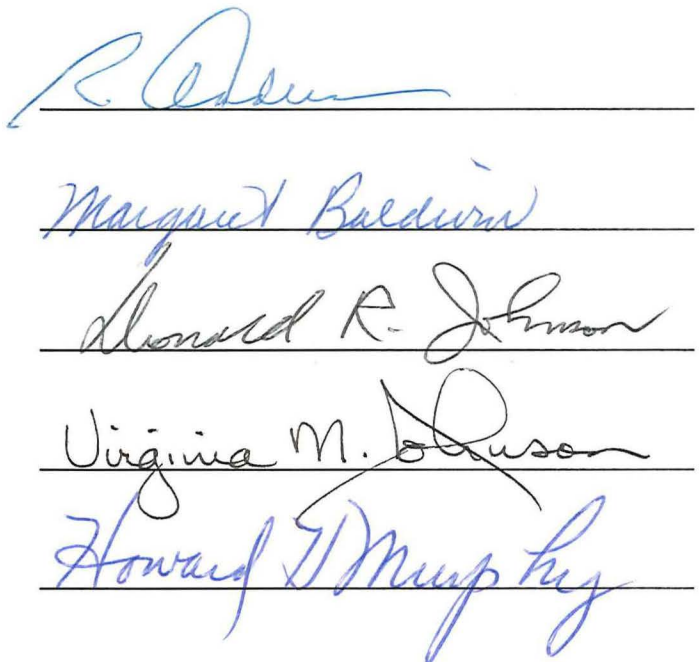 R. Anderson
Margaret Baldwin
Leonard R. Johnson
Virginia M. Johnson
Howard D Murphy